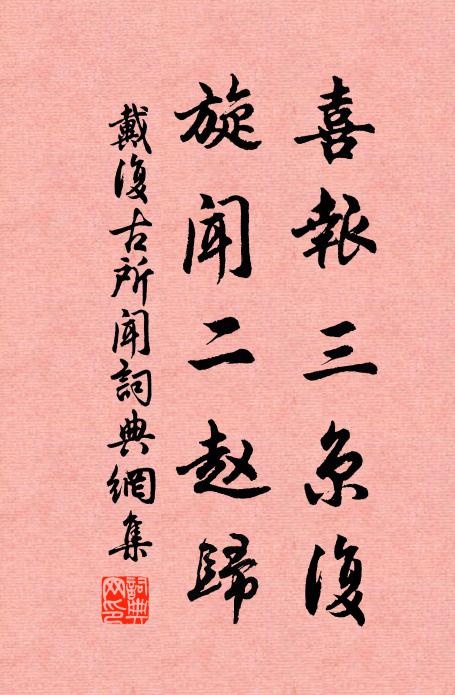 喜報三京復
旋聞二赵歸
戴復古所聞詞典網集
詞典
网印